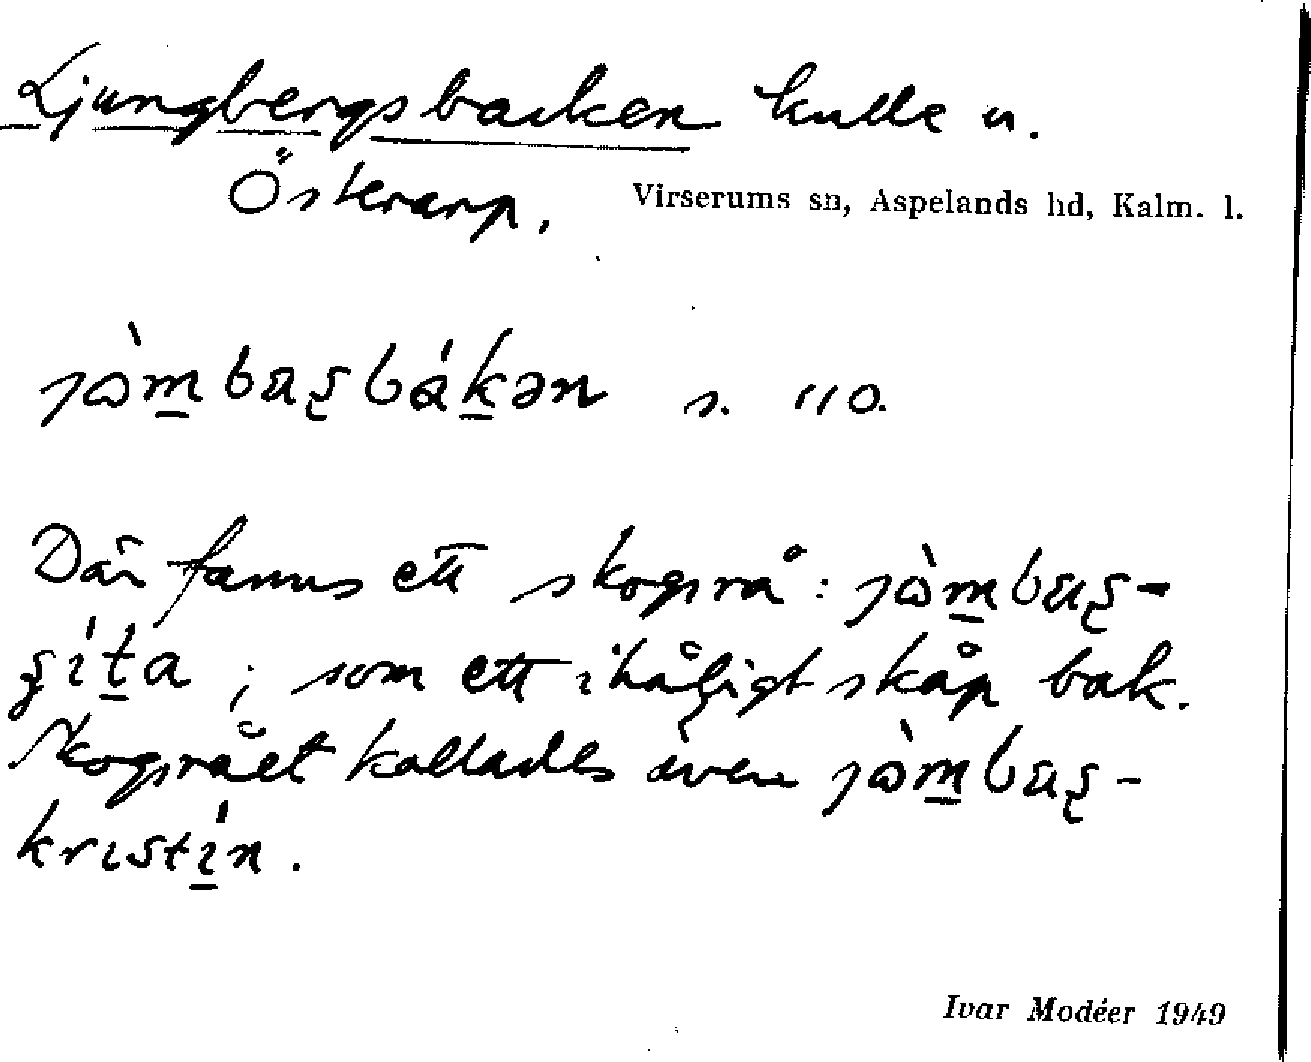 Ljungbergsbacken kulle n.
Österarp,
Virserums sn, Aspelands hd, Kalm. l.
s. 110.
Där fanns ett skogsrå:
; som ett ihåligt skåp bak.
Skogsrået kallades även
kristin.
Ivar Modéer 1949